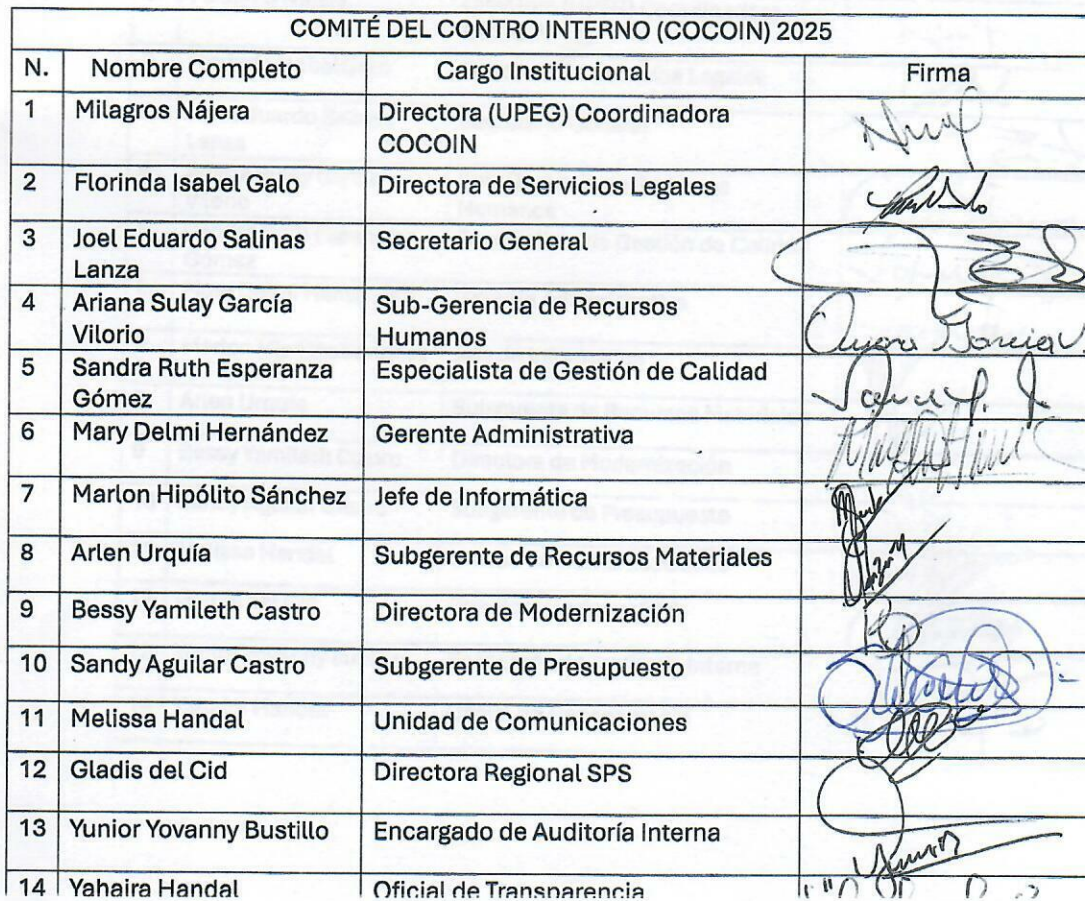 COMITÉ DEL CONTRO INTERNO (COCOIN) 2025
N. Nombre Completo Cargo Institucional Firma
1 Milagros Nájera Directora (UPEG) Coordinadora
COCOIN
2 Florinda Isabel Galo Directora de Servicios Legales
3 Joel Eduardo Salinas Secretario General
Lanza
4 Ariana Sulay García Sub-Gerencia de Recursos
Vilorio Humanos
5 Sandra Ruth Esperanza Especialista de Gestión de Calidad
Gómez
6 Mary Delmi Hernández Gerente Administrativa
7 Marlon Hipólito Sánchez Jefe de Informática
8 Arlen Urquía Subgerente de Recursos Materiales
9 Bessy Yamileth Castro Directora de Modernización
10 Sandy Aguilar Castro Subgerente de Presupuesto
11 Melissa Handal Unidad de Comunicaciones
12 Gladis del Cid Directora Regional SPS
13 Yunior Yovanny Bustillo Encargado de Auditoría Interna
14 Yahaira Handal Oficial de Transparencia